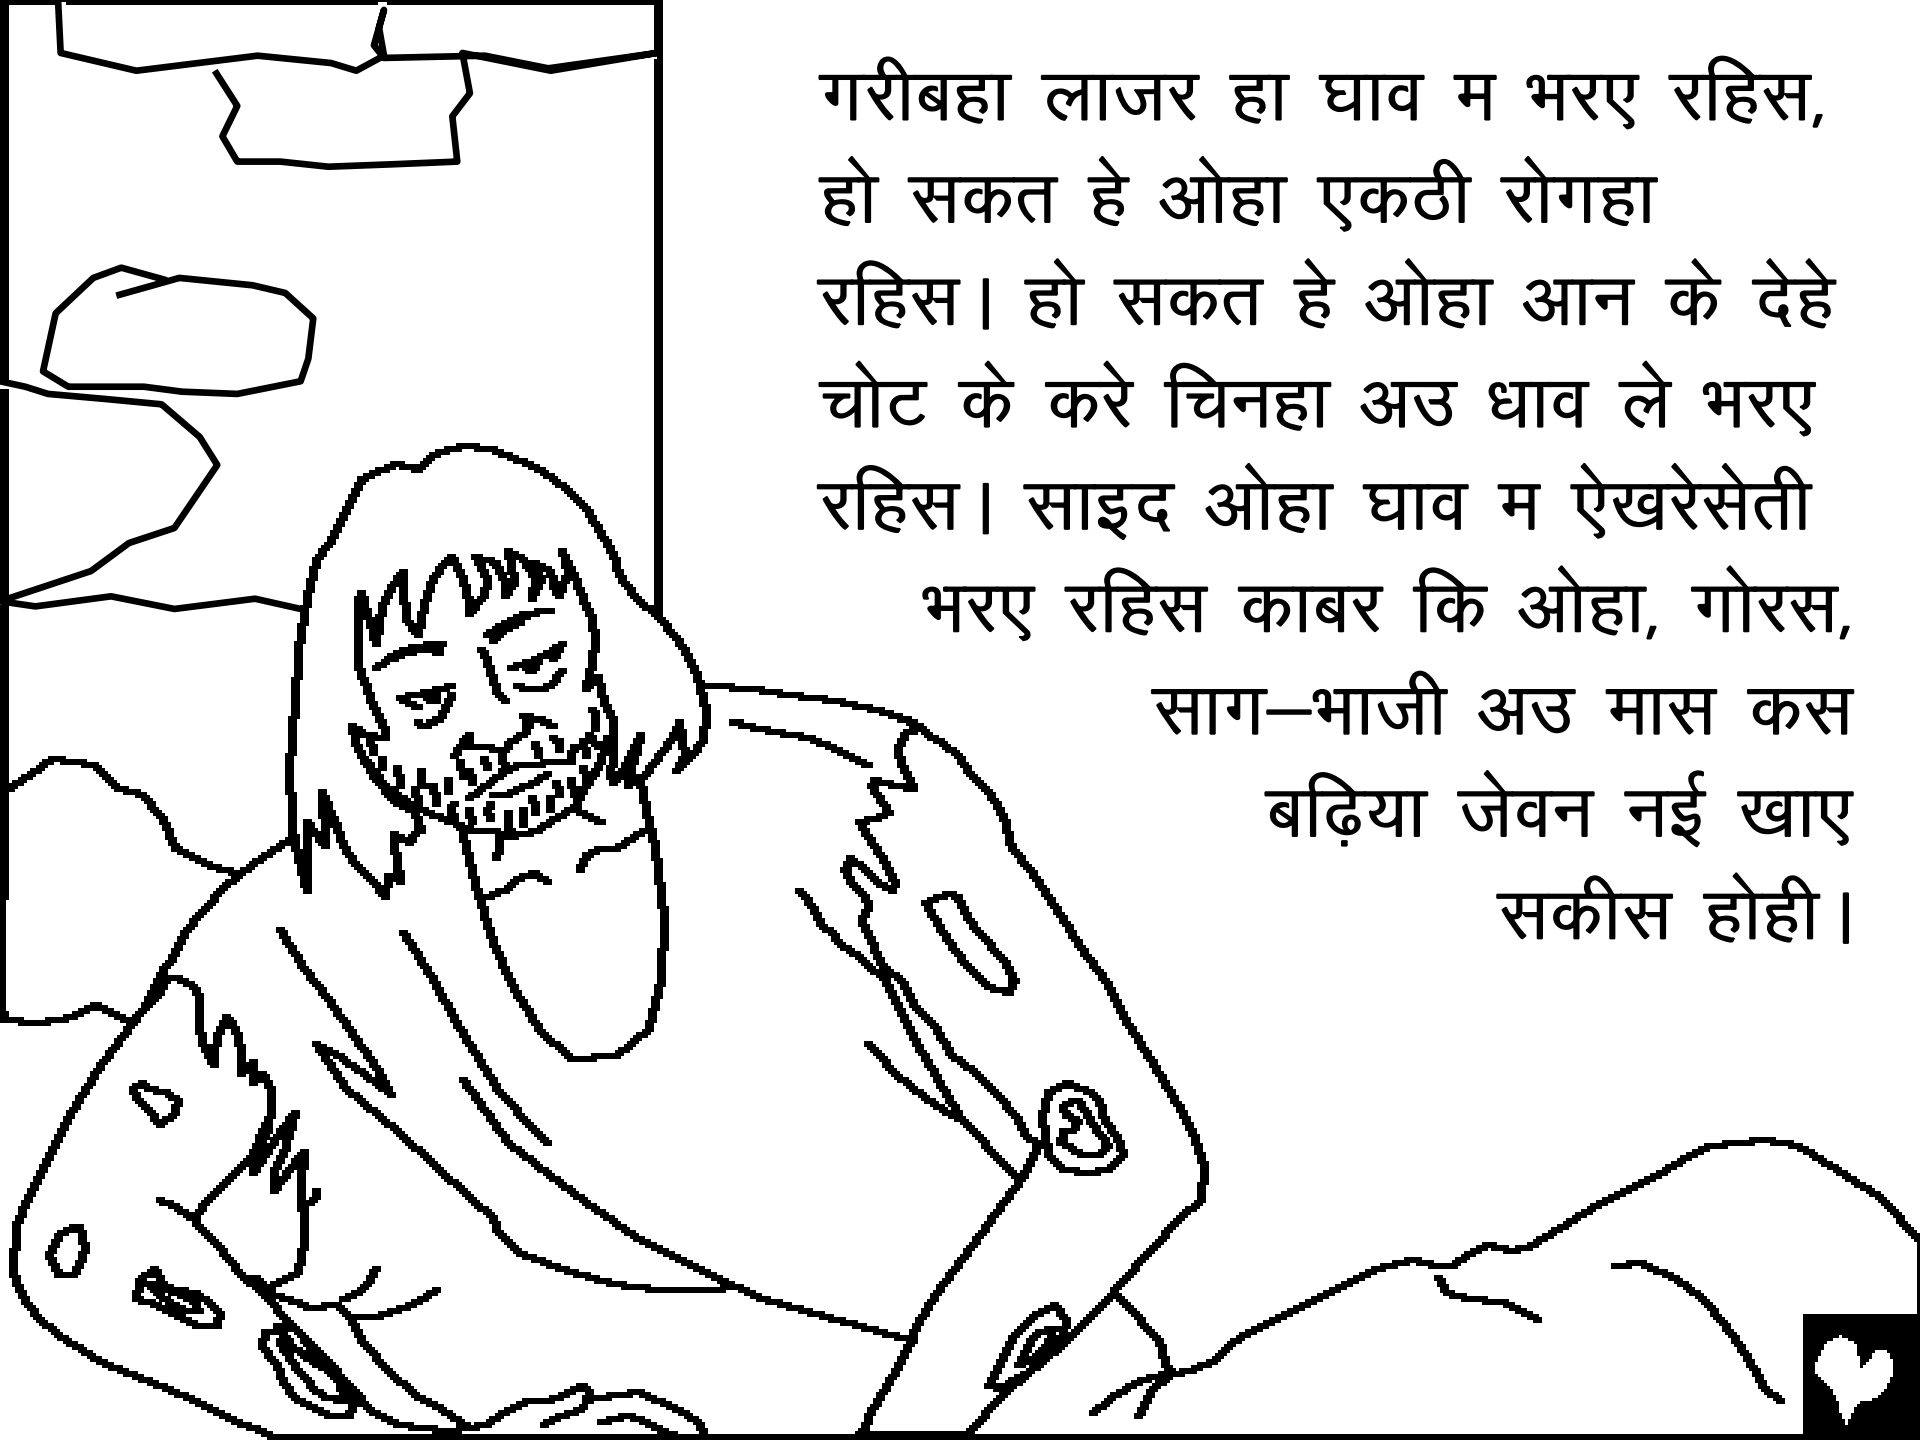 गरीबहा लाजर हा घाव म भरए रहिस,
हो सकत हे ओहा एकठी रोगहा
रहिस। हो सकत हे ओहा आन के देहे
चोट के करे चिनहा अउ धाव ले भरए
रहिस। साइद ओहा घाव म ऐखरेसेती
भरए रहिस काबर कि ओहा, गोरस,
साग–भाजी अउ मास कस
बढ़िया जेवन नई खाए
सकीस होही।